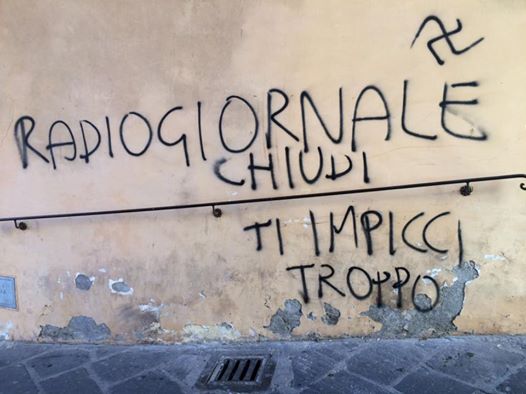 RADIOGIORNALE
CHIUDI
TI IMPICCI
TROPPO